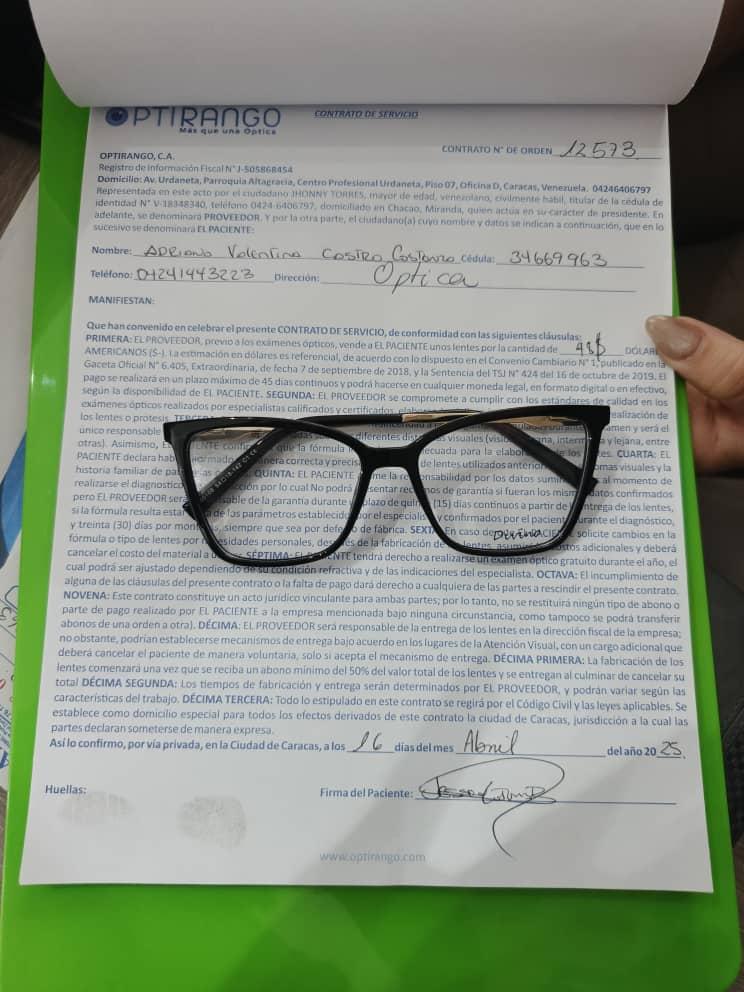 OPTIRANGO
Más que una Optica
CONTRATO DE SERVICIO
CONTRATO N° DE ORDEN 12573
OPTIRANGO, C.A.
Registro de Información Fiscal N° J-505868454
Domicilio: Av. Urdaneta, Parroquia Altagracia, Centro Profesional Urdaneta, Piso 07, Oficina D, Caracas, Venezuela. 04246406797
Representada en este acto por el ciudadano JHONNY TORRES, mayor de edad, venezolano, civilmente hábil, titular de la cédula de
identidad N° V-18348340, teléfono 0424-6406797, domiciliado en Chacao, Miranda, quien actúa en su carácter de presidente. En
adelante, se denominará PROVEEDOR. Y por la otra parte, el ciudadano(a) cuyo nombre y datos se indican a continuación, que en lo
sucesivo se denominará EL PACIENTE:
Nombre: Adriana Valentina Castro Cédula: 34669963
Teléfono: 04241443223 Dirección: Optica
MANIFIESTAN:
Que han convenido en celebrar el presente CONTRATO DE SERVICIO, de conformidad con las siguientes cláusulas:
PRIMERA: EL PROVEEDOR, previo a los exámenes ópticos, vende a EL PACIENTE unos lentes por la cantidad de 48$
AMERICANOS ($-). La estimación en dólares es referencial, de acuerdo con lo dispuesto en el Convenio Cambiario N° 1, publicado en la
Gaceta Oficial N° 6.405, Extraordinaria, de fecha 7 de septiembre de 2018, y la Sentencia del TSJ N° 424 del 16 de octubre de 2019. El
pago se realizará en un plazo máximo de 45 días continuos y podrá hacerse en cualquier moneda legal, en formato digital o en efectivo,
según la disponibilidad de EL PACIENTE. SEGUNDA: EL PROVEEDOR se compromete a cumplir con los estándares de calidad en los
exámenes ópticos realizados por especialistas calificados y certificados, realización de
los lentes o prótesis. y será el
único responsable diferentes visuales lejana, entre
otras). Asimismo, que la fórmula CUARTA: EL
PACIENTE declara correcta y precisa de lentes utilizados visuales y la
historia familiar de QUINTA: EL PACIENTE por los datos al momento de
realizarse el diagnostico por lo cual No podrá de garantía si fueran los datos confirmados
pero EL PROVEEDOR de la garantía durante plazo de (15) días continuos a partir de entrega de los lentes,
si la fórmula resulta de los parámetros por el y confirmados por el paciente durante el diagnóstico,
y treinta (30) días por siempre que sea por de fábrica. SEXTA: En caso de solicite cambios en la
fórmula o tipo de lentes por personales, de la fabricación de lentes, adicionales y deberá
cancelar el costo del material SÉPTIMA: EL PACIENTE tendrá derecho a realizarse un examen óptico gratuito durante el año, el
Divina
cual podrá ser ajustado dependiendo de su condición refractiva y de las indicaciones del especialista. OCTAVA: El incumplimiento de
alguna de las cláusulas del presente contrato o la falta de pago dará derecho a cualquiera de las partes a rescindir el presente contrato.
NOVENA: Este contrato constituye un acto jurídico vinculante para ambas partes; por lo tanto, no se restituirá ningún tipo de abono o
parte de pago realizado por EL PACIENTE a la empresa mencionada bajo ninguna circunstancia, como tampoco se podrá transferir
abonos de una orden a otra). DÉCIMA: EL PROVEEDOR será responsable de la entrega de los lentes en la dirección fiscal de la empresa;
no obstante, podrían establecerse mecanismos de entrega bajo acuerdo en los lugares de la Atención Visual, con un cargo adicional que
deberá cancelar el paciente de manera voluntaria, solo si acepta el mecanismo de entrega. DÉCIMA PRIMERA: La fabricación de los
lentes comenzará una vez que se reciba un abono mínimo del 50% del valor total de los lentes y se entregan al culminar de cancelar su
total DÉCIMA SEGUNDA: Los tiempos de fabricación y entrega serán determinados por EL PROVEEDOR, y podrán variar según las
características del trabajo. DÉCIMA TERCERA: Todo lo estipulado en este contrato se regirá por el Código Civil y las leyes aplicables. Se
establece como domicilio especial para todos los efectos derivados de este contrato la ciudad de Caracas, jurisdicción a la cual las
partes declaran someterse de manera expresa.
Así lo confirmo, por vía privada, en la Ciudad de Caracas, a los 16 días del mes Abril del año 20 25.
Huellas:
Firma del Paciente:
www.optirango.com